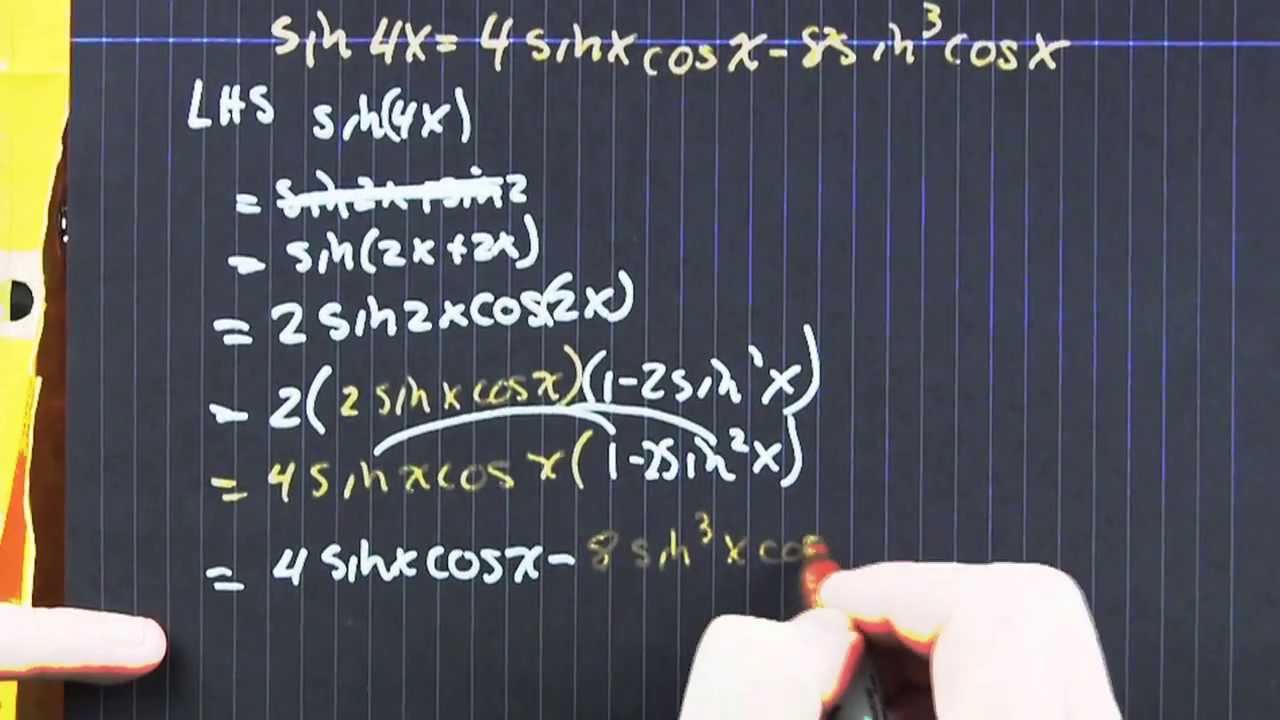 sin 4x = 4 sinx cosx - 8sin³ cosx
LHS sin(4x)
= sin2x+sin2
= sin(2x+2x)
= 2 sin2xcos(2x)
= 2(2 sinx cosx)(1-2sin²x)
= 4 sinxcosx(1-2sin²x)
= 4 sinxcosx - 8 sin³x cos